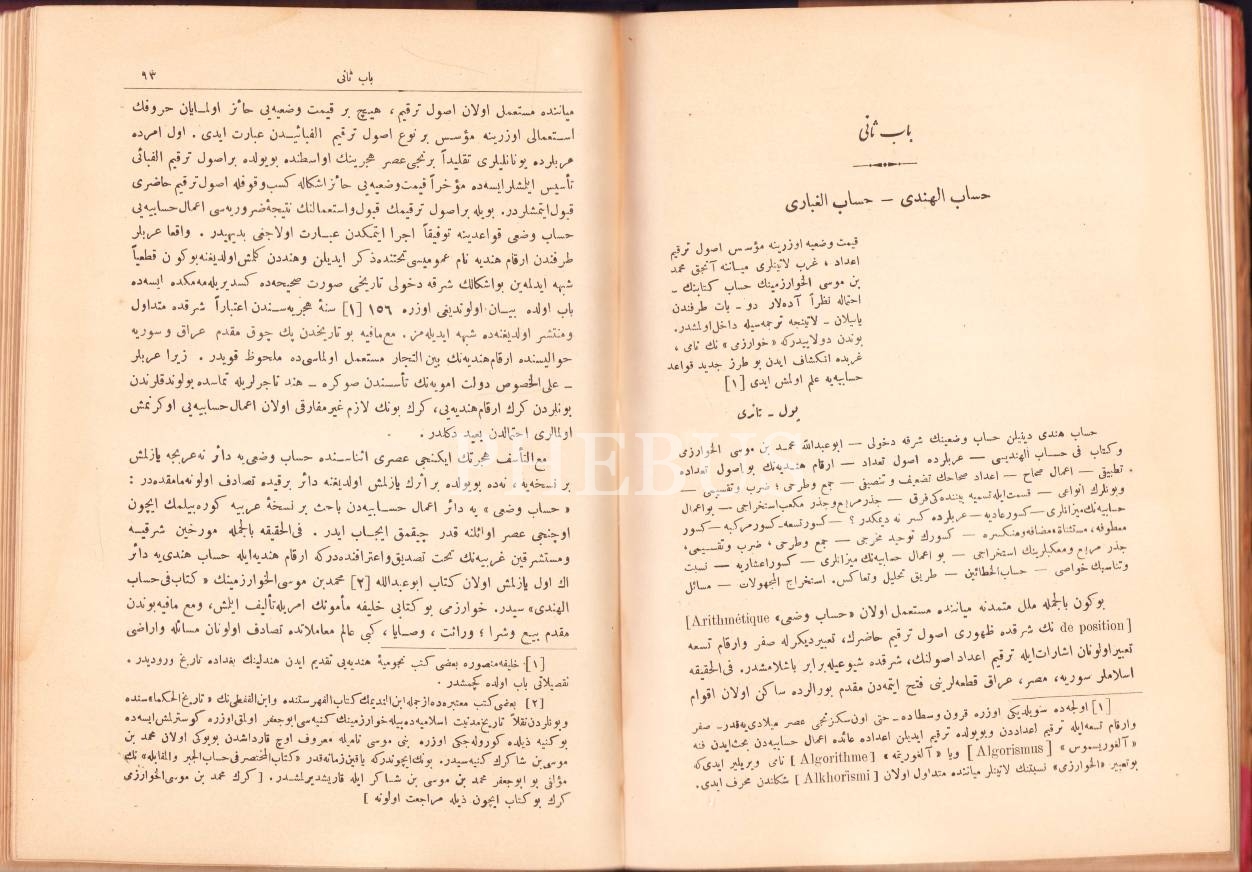 باب ثانی
حساب الهندی — حساب الغباری
قیمت وضعیه اوزرینه مؤسس اصول ترقیم
اعداد ، غرب لاتینلری میاننه آنجق محمد
بن موسی الخوارزمینك حساب کتابنك ـ
احتماله نظراً آده‌لار دو ـ بات طرفندن
یاپیلان ـ لاتینجه ترجمه‌سیله داخل اولمشدر.
بوندن دولاییدرکه «خوارزمی» نك نامی ،
غربده انکشاف ایدن بو طرز جدید قواعد
حسابیه‌یه علم اولمش ایدی [١]
پول ـ تانری
حساب هندی دینیلن حساب وضعینك شرقه دخولی — ابوعبدالله محمد بن موسی الخوارزمی
و کتاب فی حساب الهندیسی — عربلرده اصول تعداد — ارقام هندیه‌نك بو اصول تعداده
تطبیقی — اعمال صحاح — اعداد صحاحك تضعیف و تنصیفی — جمع و طرحی ؛ ضرب و تقسیمی —
و بونلرك انواعی — قسمت ایله تسمیه بیننده‌کی فرق — جذر مربع و جذر مکعب استخراجی — بو اعمال
حسابیه‌نك میزانلری — کسور عادیه — عربلرده کسر نه دیمکدر ؟ — کسور تسعه ـ کسور مرکبه — کسور
معطوفه، مستثناة، مضافه و منکسره — کسورك توحید مخرجی — جمع و طرحی ، ضرب و تقسیمی،
جذر مربع و مکعبلرینك استخراجی — بو اعمال حسابیه‌نك میزانلری — کسور اعشاریه — نسبت
و تناسبك خواصی — حساب الخطائین — طریق تحلیل و تعاکس. استخراج المجهولات — مسائل
بوکون بالجمله ملل متمدنه میاننده مستعمل اولان «حساب وضعی» Arithmétique]
[de position نك شرقده ظهوری اصول ترقیم حاضرك، تعبیر دیکرله صفر و ارقام تسعه
تعبیر اولونان اشارات ایله ترقیم اعداد اصولنك، شرقده شیوعیله برابر باشلامشدر. فی الحقیقه
اسلاملر سوریه، مصر، عراق قطعه‌لرینی فتح ایتمه‌دن مقدم بورالرده ساکن اولان اقوام
[١] اولجه‌ده سویلدیکی اوزره قرون وسطاده ـ حتی اون سکزنجی عصر میلادی‌یه قدر ـ صفر
و ارقام تسعه ایله ترقیم اعداددن و بویولده ترقیم ایدیلن اعداده عائده اعمال حسابیه‌دن بحث ایدن فنه
«آلغوریسموس» [Algorismus] ویا «آلغوریتمه» [Algorithme] نامی ویریلیر ایدی‌که
بو تعبیر «الخوارزمی» نسبتنك لاتینلر میاننده متداول اولان [Alkhorismi] شکلندن محرف ایدی.
باب ثانی ٩٣
میاننده مستعملی اولان اصول ترقیم ، هیچ بر قیمت وضعیه‌یی حائز اولمایان حروفك
استعمالی اوزرینه مؤسس بر نوع اصول ترقیم الفبائیدن عبارت ایدی . اول امرده
عربلرده یونانلیلری تقلیداً برنجی عصر هجرینك اواسطنده بویولده بر اصول ترقیم الفبائی
تأسیس ایتمشلر ایسه‌ده مؤخراً قیمت وضعیه‌یی حائز اشکاله کسب وقوفله اصول ترقیم حاضری
قبول ایتمشلردر. بویله بر اصول ترقیمك قبول و استعمالنك نتیجهٔ ضروریه‌سی اعمال حسابیه‌یی
حساب وضعی قواعدینه توفیقاً اجرا ایتمکدن عبارت اولاجغی بدیهیدر . واقعا عربلر
طرفندن ارقام هندیه نام عمومیسی تحتنده ذکر ایدیلن و هنددن کلمش اولدیغنه بوکون قطعیاً
شبهه ایدلمه‌ین بو اشکالك شرقه دخولی تاریخی صورت صحیحه‌ده کسدیریله‌مه‌مکده ایسه‌ده
باب اولده بیان اولوندیغی اوزره ١٥٦ [١] سنهٔ هجریه‌سندن اعتباراً شرقده متداول
و منتشر اولدیغنده شبهه ایدیله‌مز. مع مافیه بو تاریخدن پك چوق مقدم عراق و سوریه
حوالیسنده ارقام هندیه‌نك بین التجار مستعمل اولماسی‌ده ملحوظ قویدر . زیرا عربلر
ـ علی الخصوص دولت امویه‌نك تأسسندن صوکره ـ هند تاجرلریله تماسده بولوندقلرندن
بونلردن كرك ارقام هندیه‌یی، كرك بونك لازم غیر مفارقی اولان اعمال حسابیه‌یی اوکرنمش
اولمالری احتمالدن بعید دکلدر .
مع التأسف هجرتك ایکنجی عصری اثناسنده حساب وضعی‌یه دائر نه عربجه یازلمش
بر نسخه‌یه، نه‌ده بویولده بر اثرك یازلمش اولدیغنه دائر بر قیده تصادف اولونه‌مامقده‌در :
«حساب وضعی» یه دائر اعمال حسابیه‌دن باحث بر نسخهٔ عربیه کوره‌بیلمك ایچون
اوچنجی عصر اوائلنه قدر چیقمق ایجاب ایدر . فی الحقیقه بالجمله مورخین شرقیه
و مستشرقین غربیه‌نك تحت تصدیق و اعترافنده‌درکه ارقام هندیه ایله حساب هندی‌یه دائر
اك اول یازلمش اولان کتاب ابو عبدالله [٢] محمد بن موسی الخوارزمینك «کتاب فی حساب
الهندی» سیدر. خوارزمی بو کتابی خلیفه مأمونك امریله تألیف ایلمش، و مع مافیه بوندن
مقدم بیع و شرا ؛ وراثت ، وصایا ، کبی عالم معاملاتده تصادف اولونان مسائله و اراضی
[١] خلیفه منصوره بعضی کتب نجومیهٔ هندیه‌یی تقدیم ایدن هندلینك بغداده تاریخ ورودیدر .
تفصیلاتی باب اولده کچمشدر .
[٢] بعضی کتب معتبره‌ده ازجمله ابن الندیمك کتاب الفهرستنده و ابن القفطی‌نك «تاریخ الحکما» سنده
و بونلردن نقلاً تاریخ مدنیت اسلامیه‌ده بیله خوارزمینك کنیه‌سی ابو جعفر اولمق اوزره کوسترلمش ایسه‌ده
بو کنیه ذیلده کوروله‌جکی اوزره بنی موسی نامیله معروف اوچ قارداشدن بویوکی اولان محمد بن
موسی بن شاکرك کنیه‌سیدر. بونك ایچوندرکه یاقین زمانه قدر «کتاب المختصر فی حساب الجبر والمقابله» نك
مؤلفی بو ابو جعفر محمد بن موسی بن شاکر ایله قاریشدیرلمشدر. [كرك محمد بن موسی الخوارزمی
كرك بو کتاب ایچون ذیله مراجعت اولونه]
PHEBUS